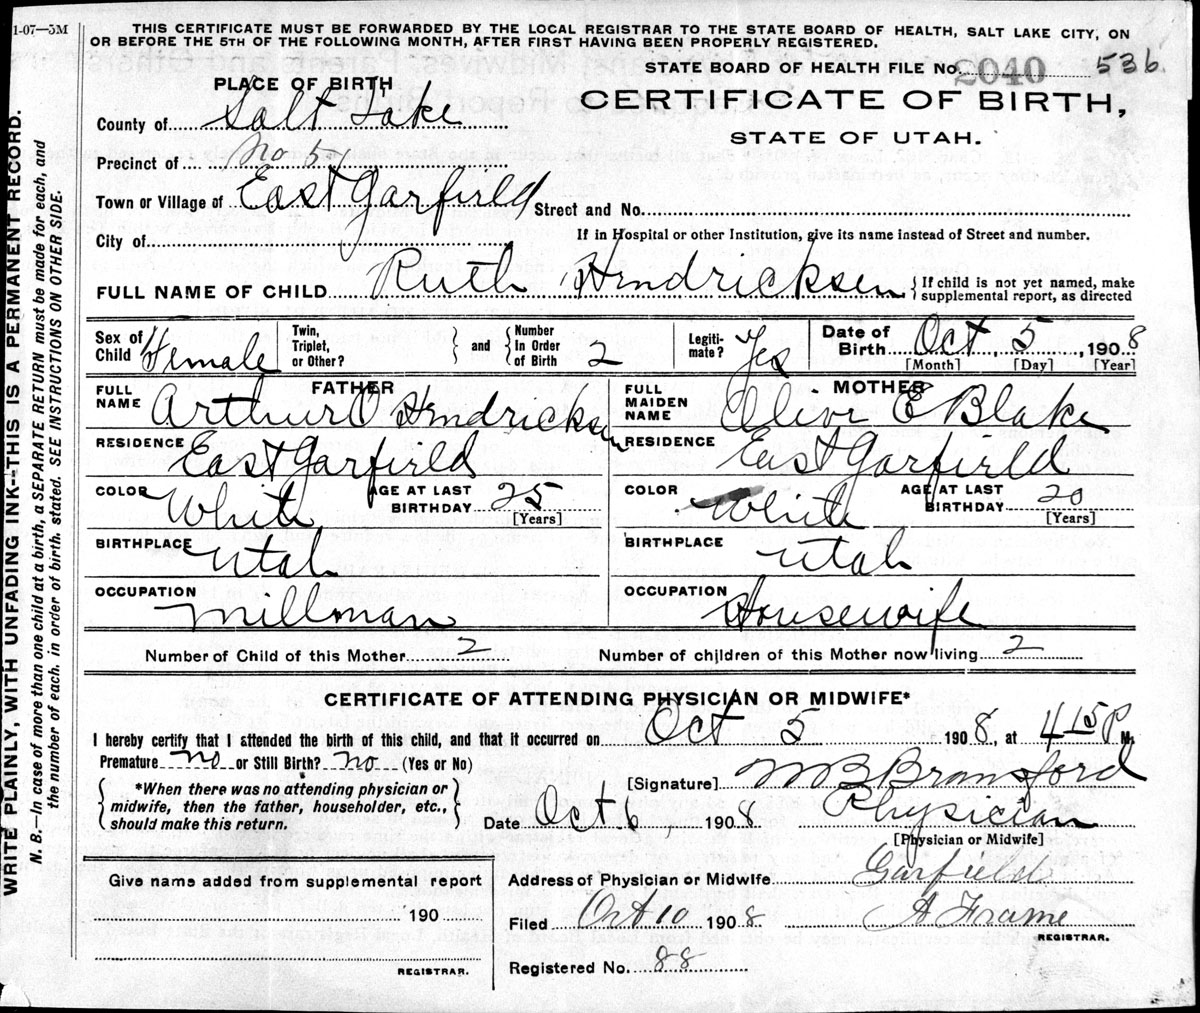 1-07—5M
THIS CERTIFICATE MUST BE FORWARDED BY THE LOCAL REGISTRAR TO THE STATE BOARD OF HEALTH, SALT LAKE CITY, ON
OR BEFORE THE 5TH OF THE FOLLOWING MONTH, AFTER FIRST HAVING BEEN PROPERLY REGISTERED.
STATE BOARD OF HEALTH FILE No. 2040 536
PLACE OF BIRTH
CERTIFICATE OF BIRTH,
STATE OF UTAH.
County of Salt Lake
Precinct of No 5
Town or Village of East Garfield Street and No.
City of If in Hospital or other Institution, give its name instead of Street and number.
FULL NAME OF CHILD Ruth Hendricksen { If child is not yet named, make
supplemental report, as directed
Sex of Child Female Twin, Triplet, or Other? } and { Number In Order of Birth 2 Legiti-mate? Yes Date of Birth Oct 5, 1908
[Month] [Day] [Year]
FATHER MOTHER
FULL NAME Arthur O Hendricksen FULL MAIDEN NAME Olive E Blake
RESIDENCE East Garfield RESIDENCE East Garfield
COLOR White AGE AT LAST BIRTHDAY 25 [Years] COLOR White AGE AT LAST BIRTHDAY 20 [Years]
BIRTHPLACE Utah BIRTHPLACE Utah
OCCUPATION Millman OCCUPATION Housewife
Number of Child of this Mother 2 Number of children of this Mother now living 2
CERTIFICATE OF ATTENDING PHYSICIAN OR MIDWIFE*
I hereby certify that I attended the birth of this child, and that it occurred on Oct 5 1908, at 4 15 P M.
Premature no or Still Birth? no (Yes or No)
[Signature] W B Bransford
{ *When there was no attending physician or
midwife, then the father, householder, etc.,
should make this return. }
Date Oct 6, 1908 Physician
[Physician or Midwife]
Give name added from supplemental report
190
REGISTRAR.
Address of Physician or Midwife Garfield
Filed Oct 10 1908 A Frame
REGISTRAR.
Registered No. 88
WRITE PLAINLY, WITH UNFADING INK--THIS IS A PERMANENT RECORD.
N. B.—In case of more than one child at a birth, a SEPARATE RETURN must be made for each, and
the number of each, in order of birth, stated. SEE INSTRUCTIONS ON OTHER SIDE.